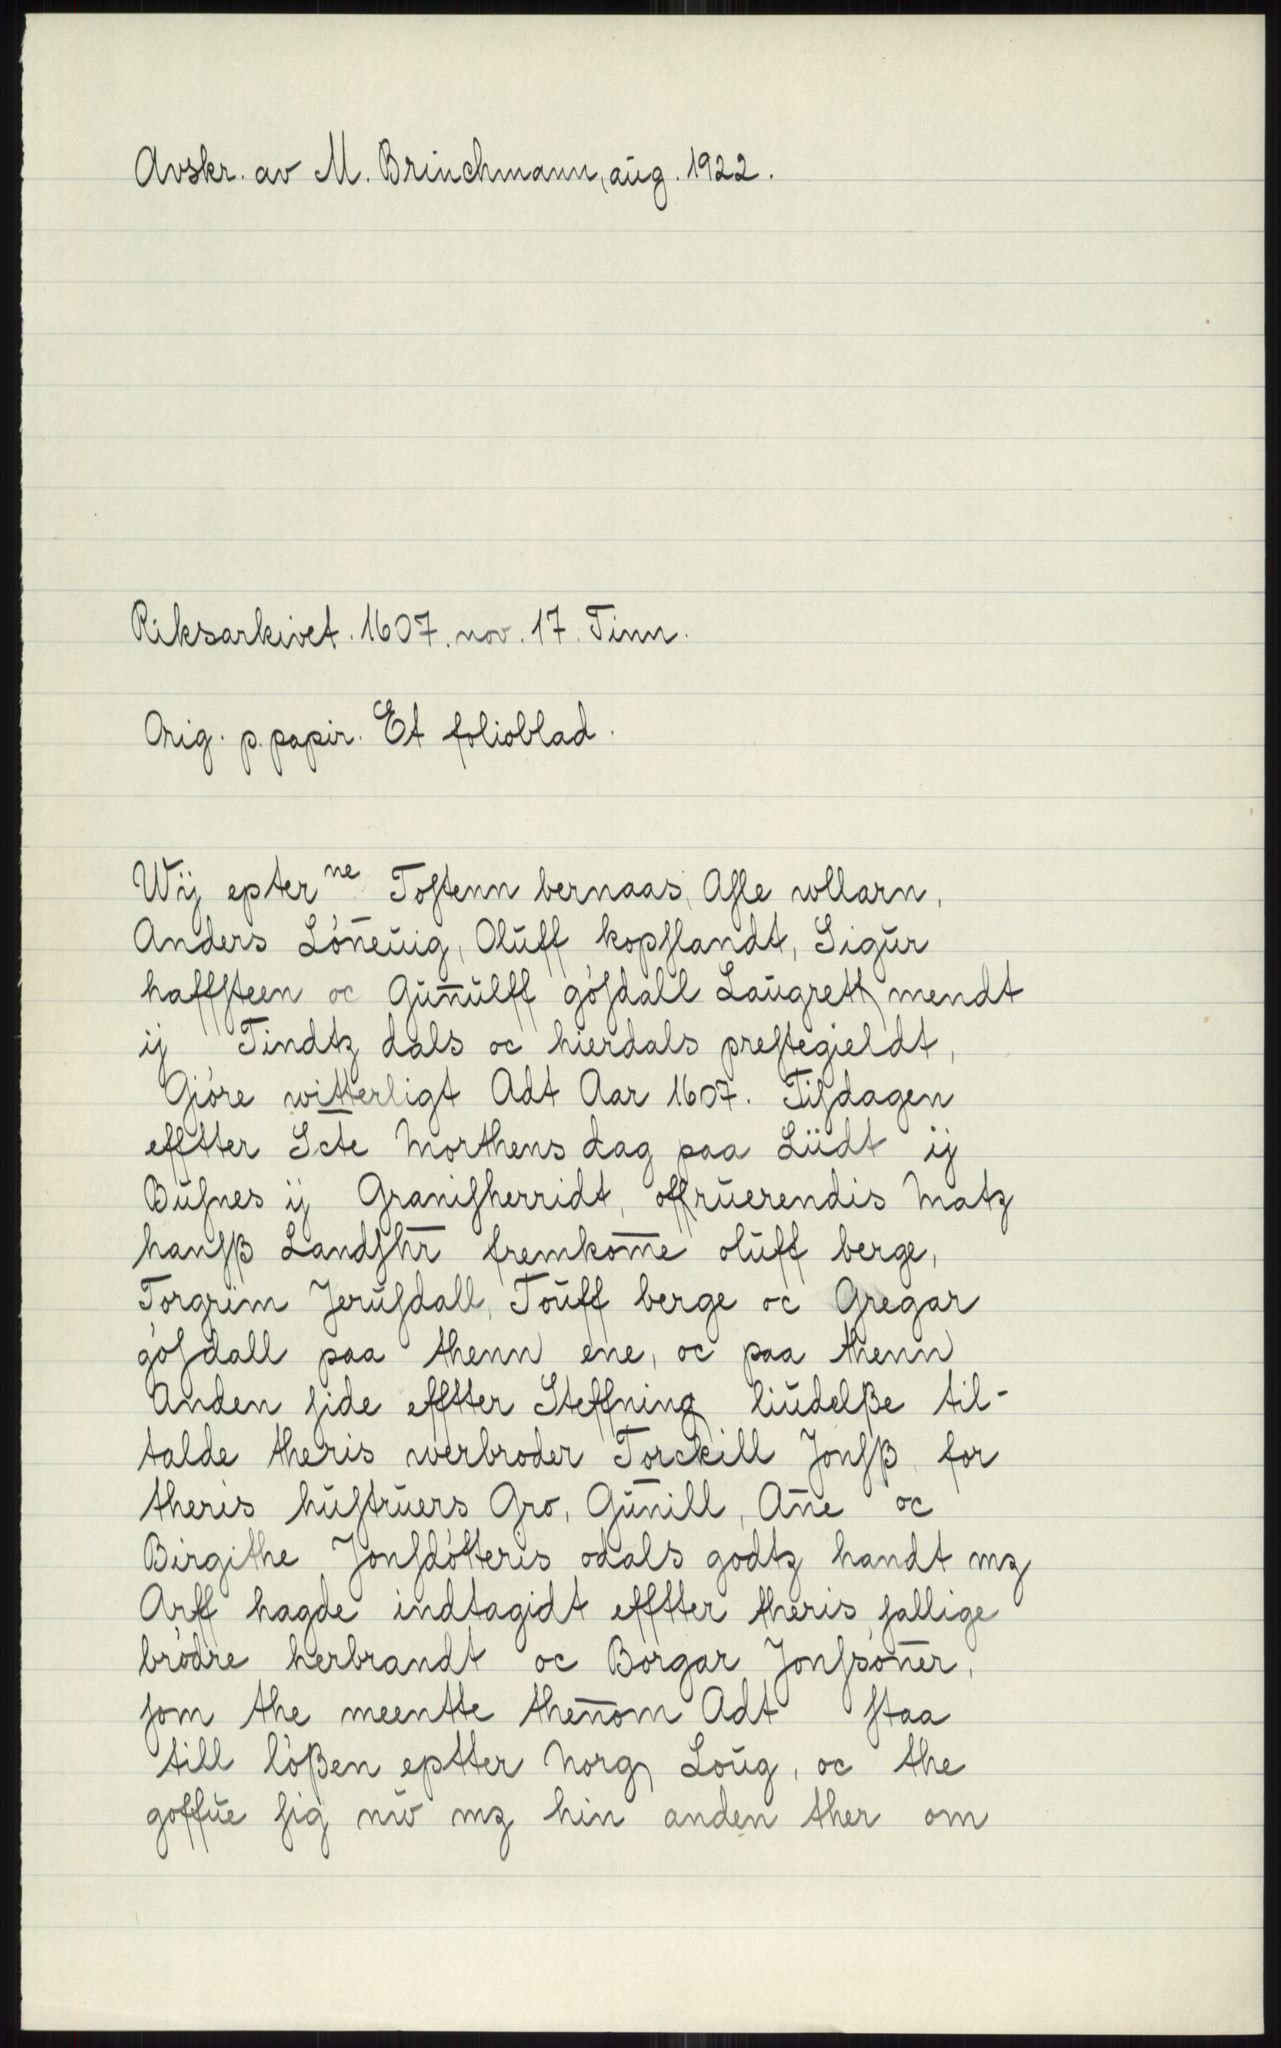 Avskr. av M. Brinchmann, aug. 1922.
Riksarkivet. 1607. nov. 17. Tinn.
Orig. p. papir. Et folioblad.
Wij epter ne Toſtenn bernaas, Aſle wllarn,
Anders Lön̄euig, Oluff kopſlandt, Sigur
haffſteen oc Gun̄ulff göſdall Laugrett mendt
ij Tindtz dals oc hierdals preſtegieldt,
Giöre witterligt Adt Aar 1607. Tiſdagen
efftter Scte Morthens dag paa Liidt ij
Buſnes ij Graniſherridt, offruerendis Matz
hanſß Landſhr̄ fremkom̄e oluff berge,
Torgrim Jeruſdall, Touff berge oc Gregar
göſdall paa thenn ene, oc paa thenn
Anden ſide efftter Steffning liudelße til-
talde theris werbroder Torckill Jonſß for
theris huſtruers Gro, Gun̄ill, An̄e oc
Birgithe Jonſdötteris odals godtz handt mz
Arff hagde indtagidt efftter theris ſallige
brödre herbrandt oc Borgar Jonſsön̄er,
ſom the meentte then̄om Adt ſtaa
till lößen eptter Norg Loug, oc the
goffue ſig nw mz hin anden ther om